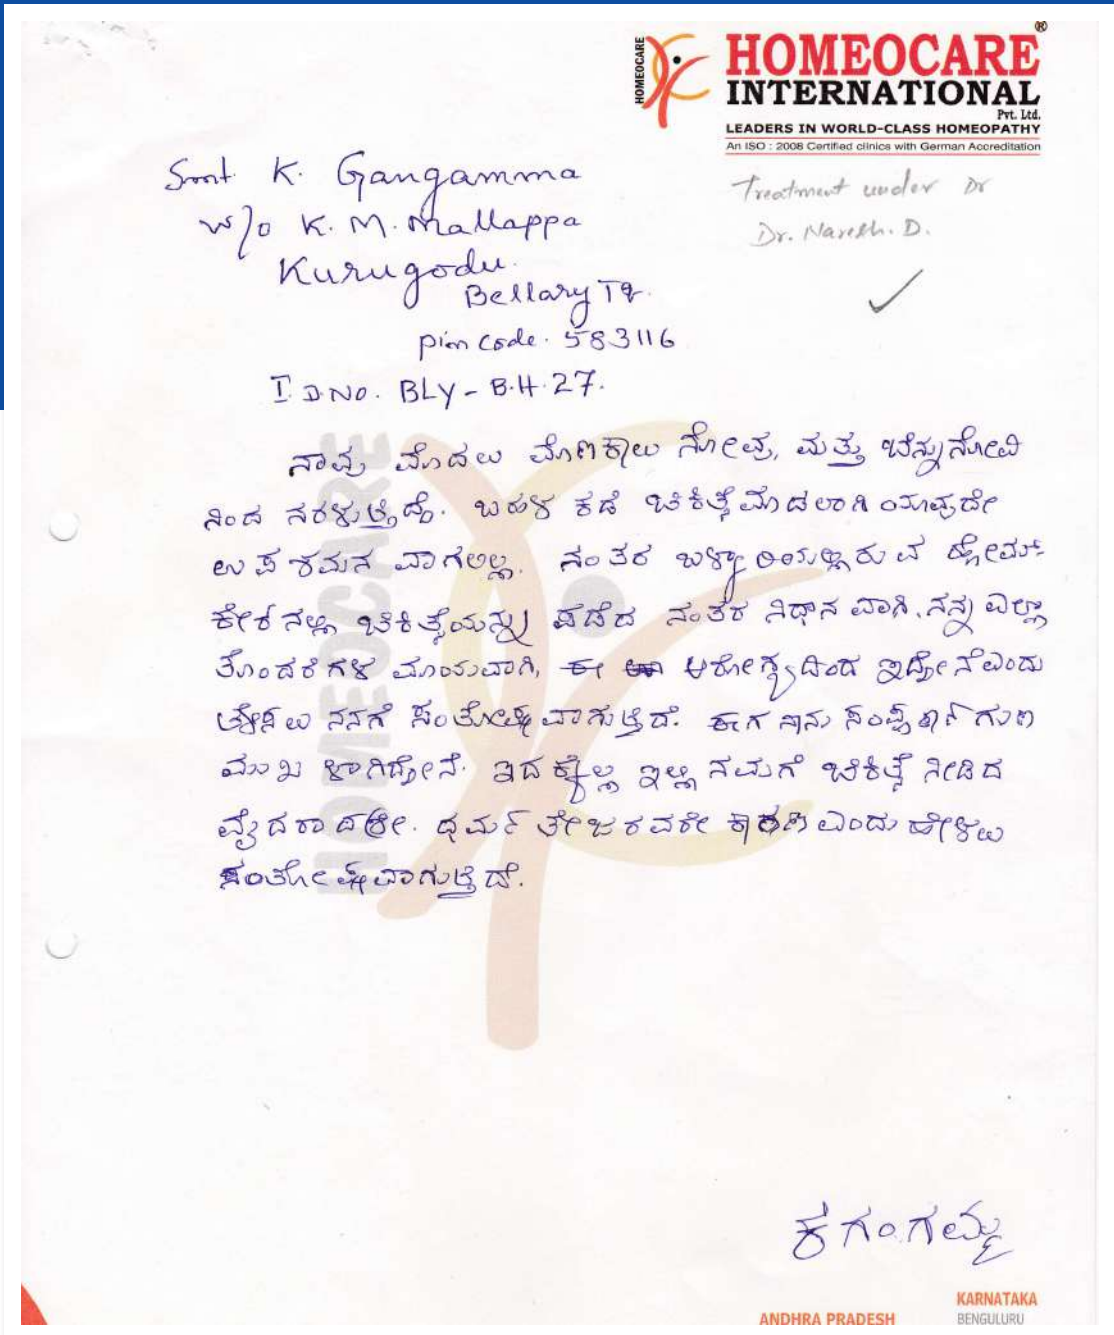 HOMEOCARE
HOMEOCARE®
INTERNATIONAL
Pvt. Ltd.
LEADERS IN WORLD-CLASS HOMEOPATHY
An ISO : 2008 Certified clinics with German Accreditation
Treatment under Dr
Dr. Naresh. D.
Smt. K. Gangamma
w/o K. M. Mallappa
Kurugodu.
Bellary Tq.
pin code. 583116
I.D.No. BLY - B.H.27.
HOMEOCARE
ನಾವು ಮೊದಲು ಮೊಣಕಾಲು ನೋವು, ಮತ್ತು ಬೆನ್ನುನೋವಿ
ನಿಂದ ನರಳುತ್ತಿದ್ದೆ. ಬಹಳ ಕಡೆ ಚಿಕಿತ್ಸೆ ಮಾಡಲಾಗಿ ಯಾವುದೇ
ಉಪಶಮನ ವಾಗಲಿಲ್ಲ. ನಂತರ ಬಳ್ಳಾರಿಯಲ್ಲಿರುವ ಹೋಮಿ
ಕೇರ್ ನಲ್ಲಿ ಚಿಕಿತ್ಸೆಯನ್ನು ಪಡೆದ ನಂತರ ನಿಧಾನ ವಾಗಿ, ನನ್ನ ಎಲ್ಲಾ
ತೊಂದರೆಗಳ ಮಾಯವಾಗಿ, ಈ ಆರೋಗ್ಯದಿಂದ ಇದ್ದೇನೆಎಂದು
ನನಗೆ ಸಂತೋಷವಾಗುತ್ತಿದೆ. ಈಗ ನಾನು ಸಂಪೂರ್ಣ ಗುಣ
ಮುಖ ಳಾಗಿದ್ದೇನೆ. ಇದಕ್ಕೆಲ್ಲ ಇಲ್ಲಿ ನಮಗೆ ಚಿಕಿತ್ಸೆ ನೀಡಿದ
ವೈದರಾದ ಶ್ರೀ. ಧರ್ಮ ತೇಜರವರೇ ಕಾರಣ ಎಂದು ಹೇಳಲು
ಸಂತೋಷವಾಗುತ್ತಿದೆ.
ಕ ಗಂಗಮ್ಮ
ANDHRA PRADESH
KARNATAKA
BENGULURU